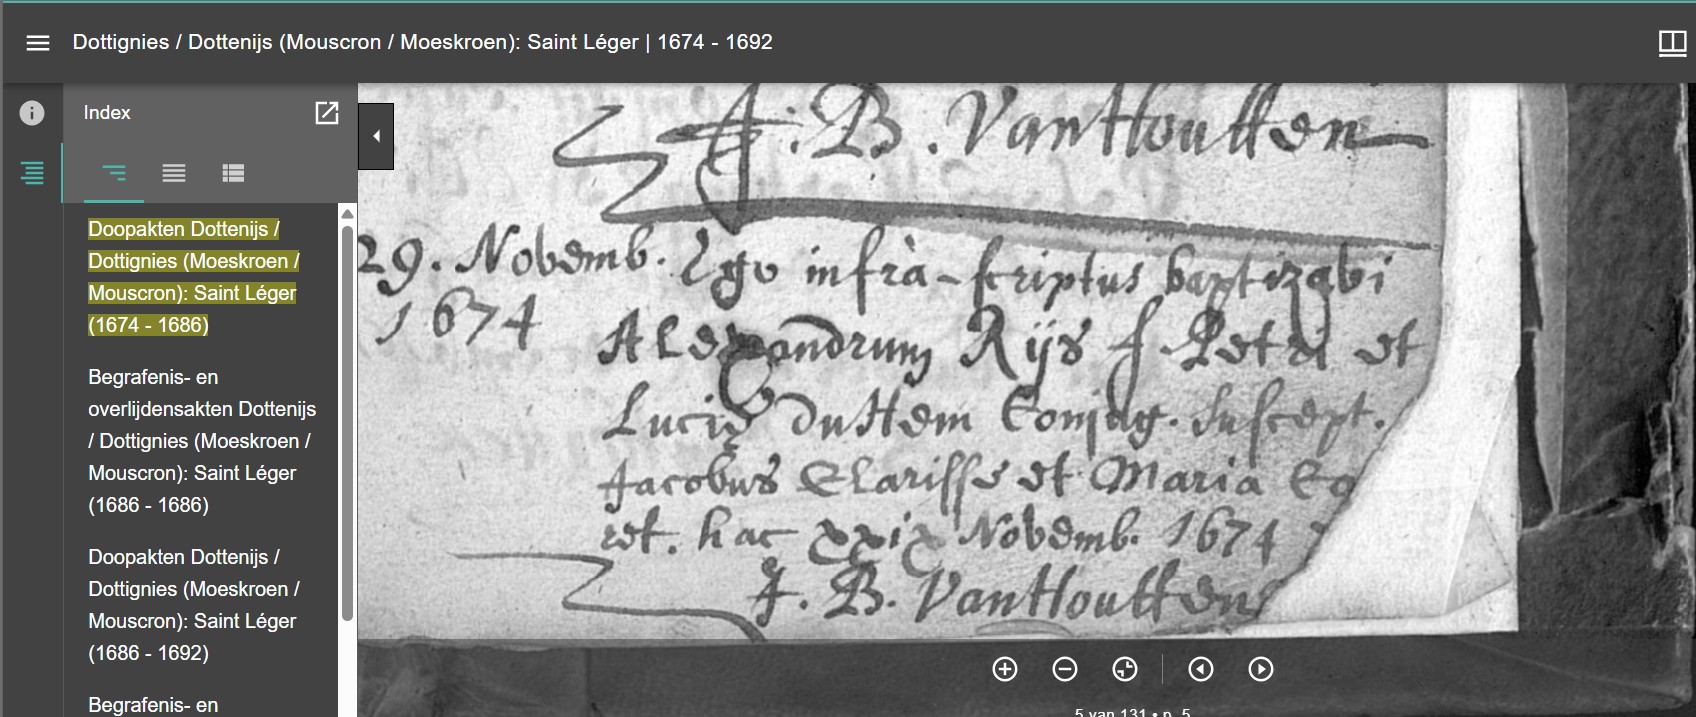 Dottignies / Dottenijs (Mouscron / Moeskroen): Saint Léger | 1674 - 1692
Index
Doopakten Dottenijs /
Dottignies (Moeskroen /
Mouscron): Saint Léger
(1674 - 1686)
Begrafenis- en
overlijdensakten Dottenijs
/ Dottignies (Moeskroen /
Mouscron): Saint Léger
(1686 - 1686)
Doopakten Dottenijs /
Dottignies (Moeskroen /
Mouscron): Saint Léger
(1686 - 1692)
Begrafenis- en
J. B. VanHoutten
29. Novemb. Ego infrà-scriptus baptizavi
1674
Alexandrum Rijs f. Petri et
Luciæ duHem Conjug. Suscept.
Jacobus Clarisse et Maria
ret. hac xxix Novemb. 1674
J. B. VanHoutten
5 van 131 • p. 5